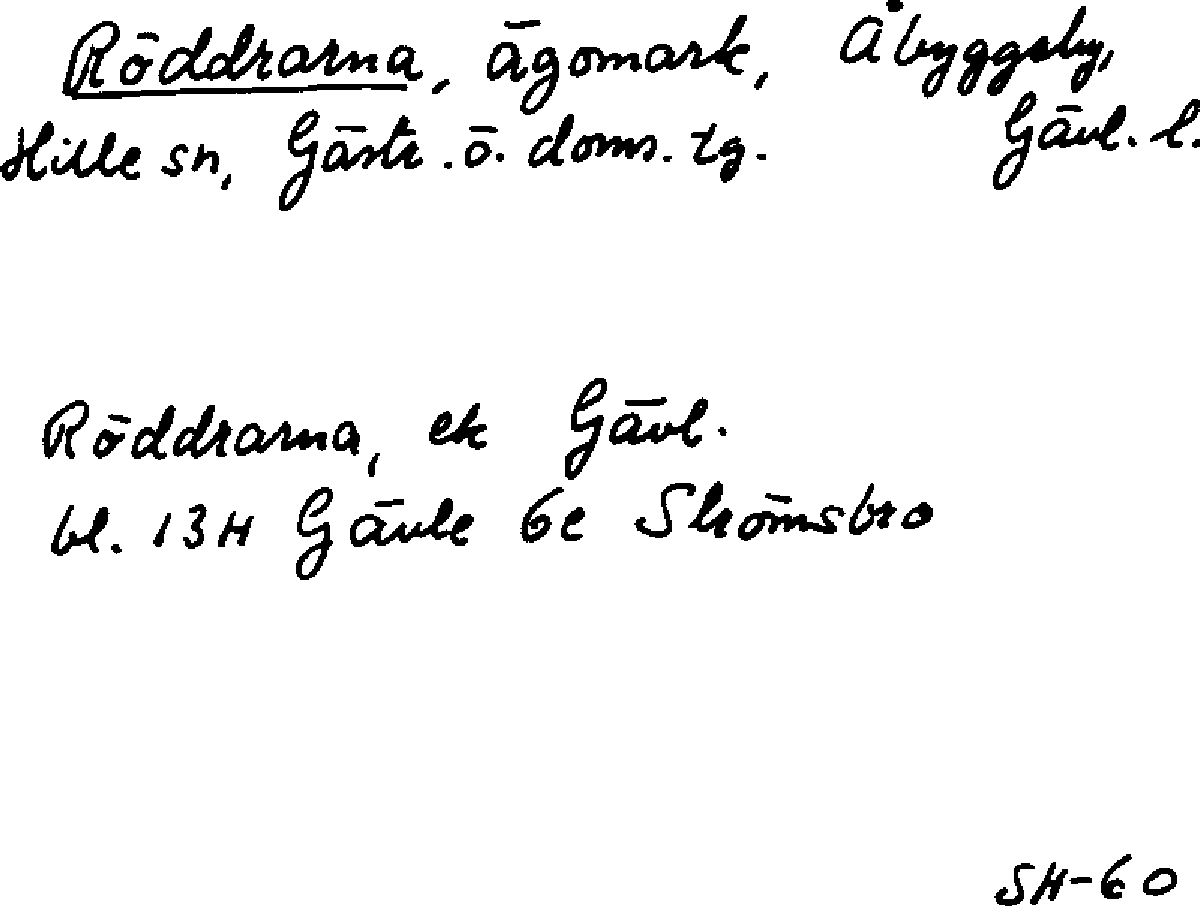 Röddrarna, ägomark, Åbyggeby,
Hille sn, Gästr. ö. doms. tg. Gävl. l.
Röddrarna, ek Gävl.
bl. 13H Gävle 6e Strömsbro
SH-60